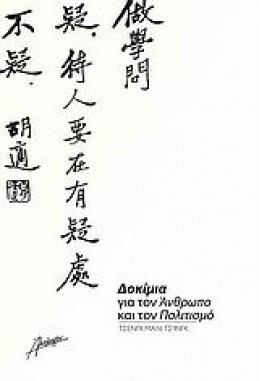 做學問要在有疑處
不疑.
疑.待人
胡適
Δοκίμια
για τον Άνθρωπο
και τον Πολιτισμό
ΤΣΕΝΓΚ ΜΑΝ-ΤΣ'ΙΝΓΚ